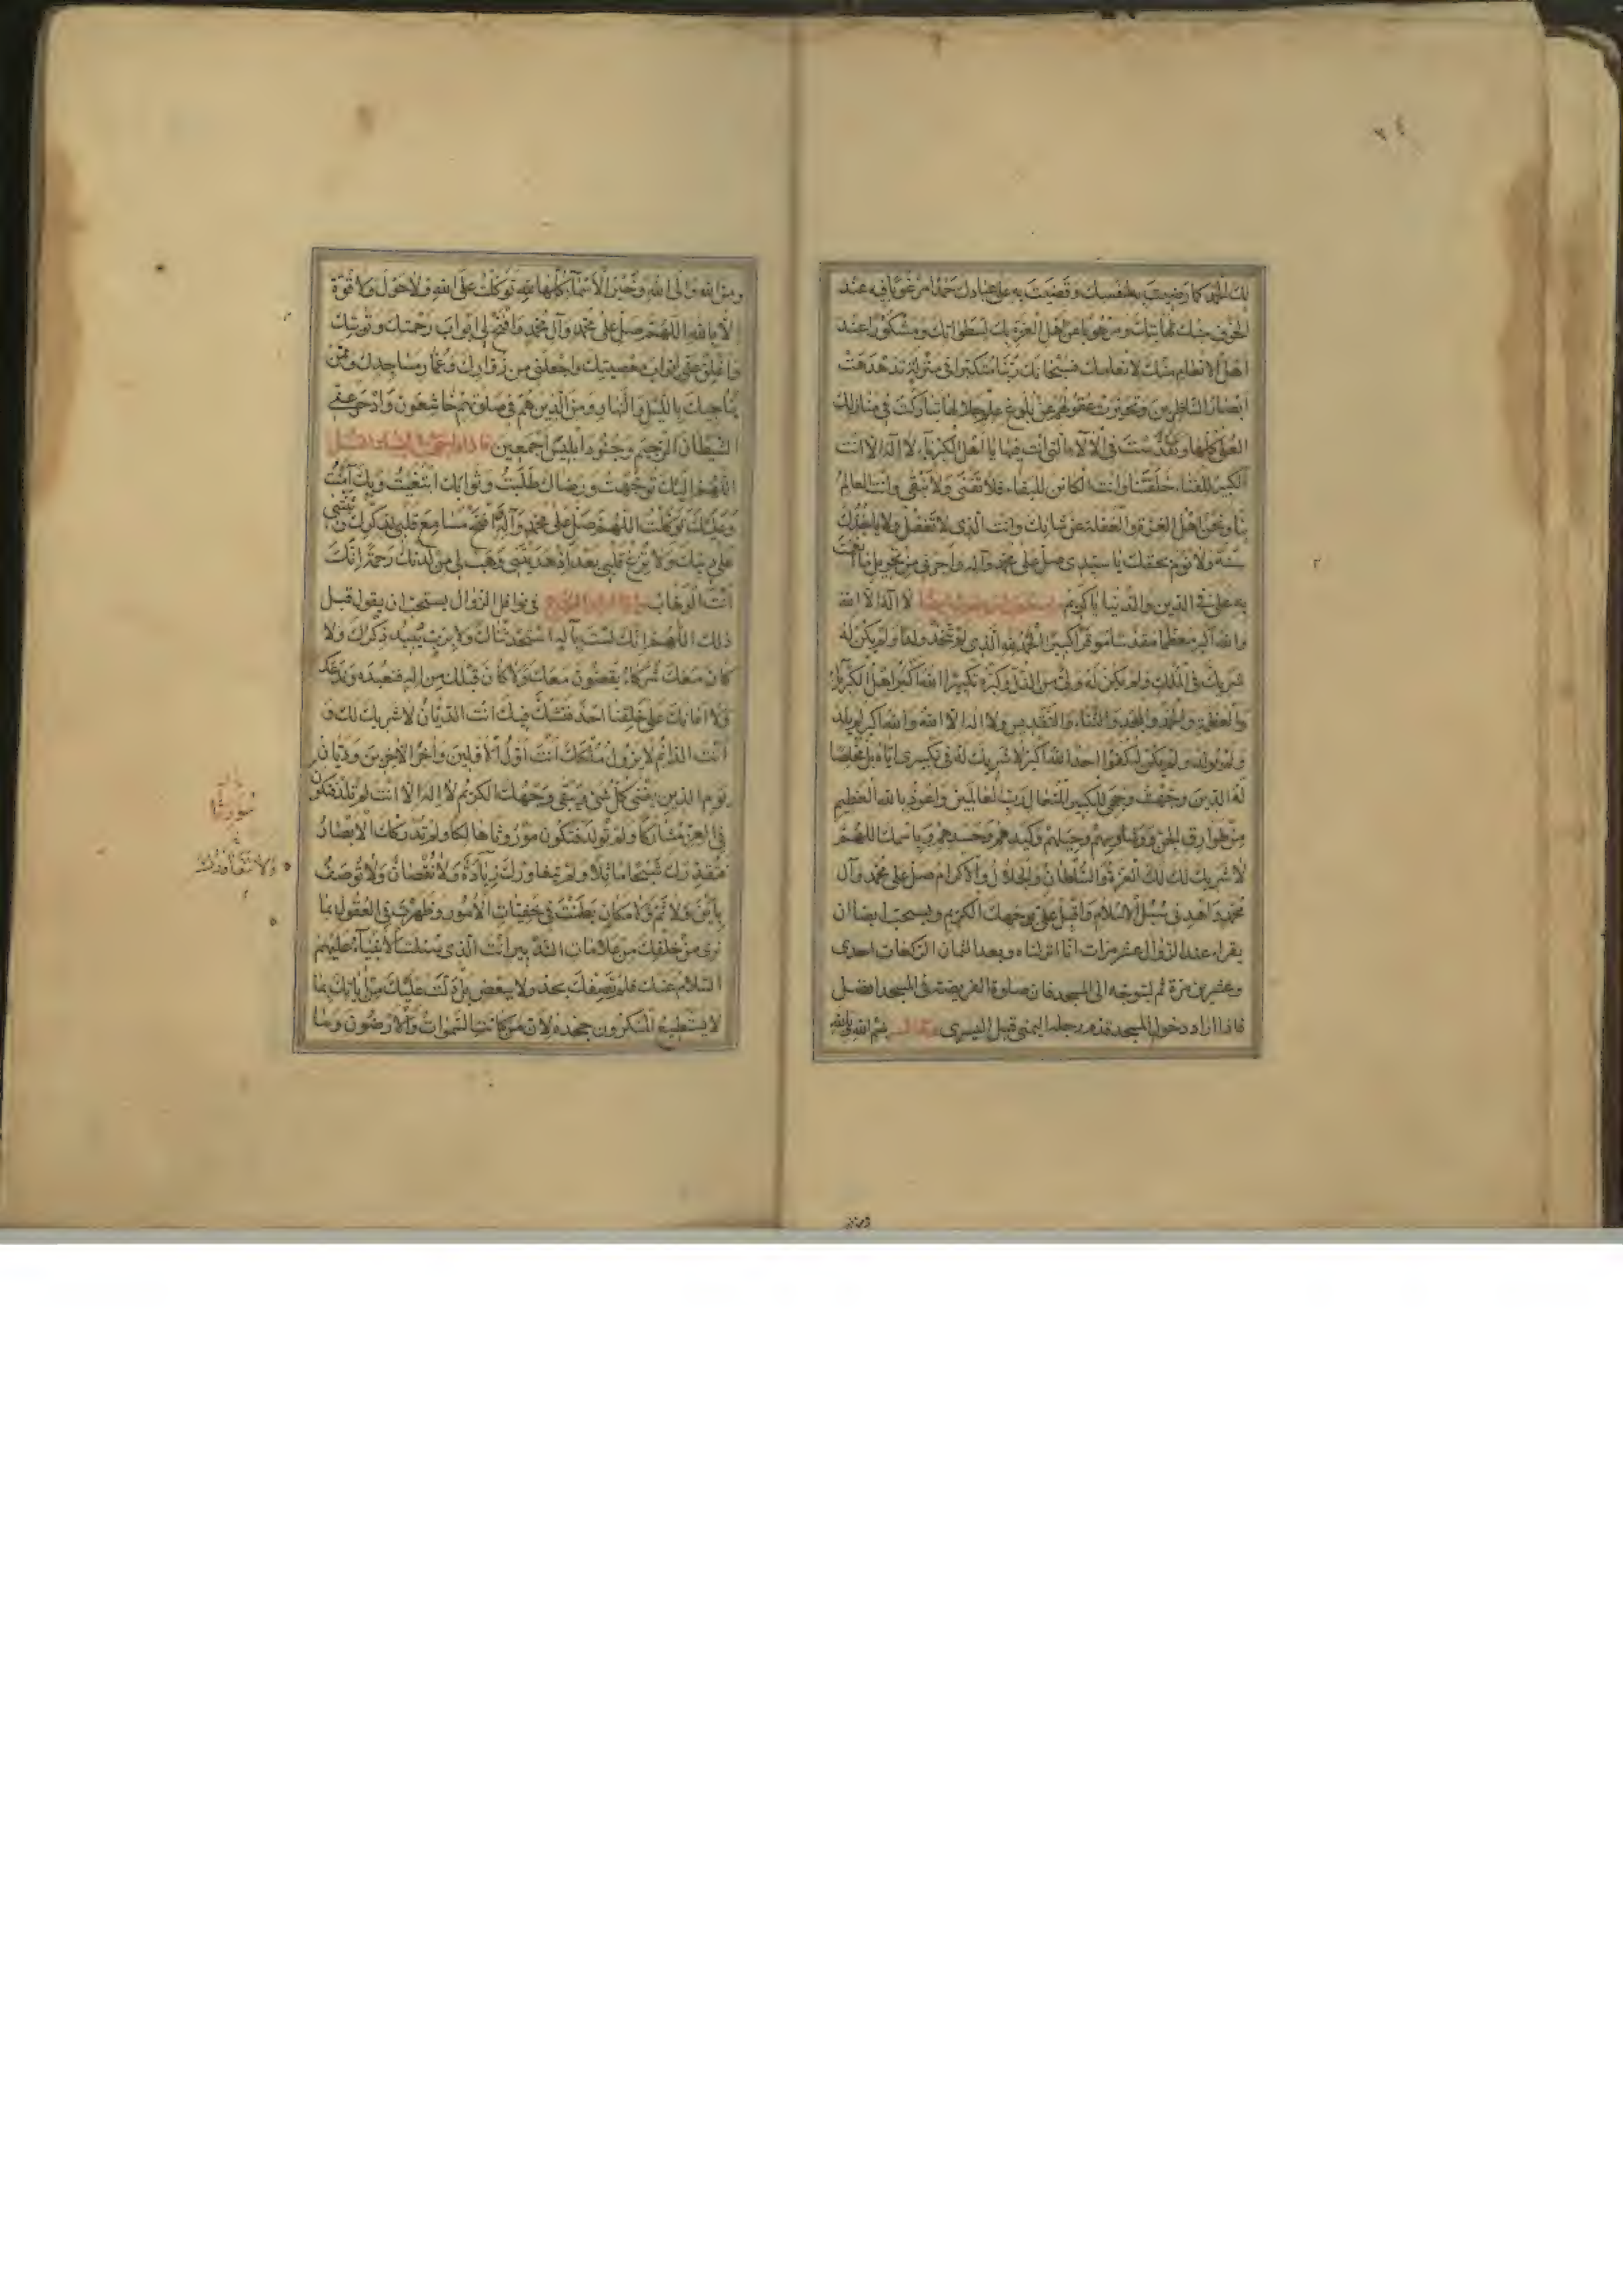 ٦٤
لك الحمد كما رضيت به لنفسك وقضيت به على عبادك حمدا مرغوبا فيه عند
اهل الخوف منك لمهابتك ومرهوبا عن اهل العزة بك لسطواتك ومشكورا عند
اهل الانعام منك لانعامك فسبحانك ربنا متكبرا في منزلة تدهدهت
ابصار الناظرين وتحيرت عقولهم عن بلوغ علم جلالها تباركت في منازلك
العلى كلها وتقدست في الآلاء التي انت فيها يا اهل الكبرياء لا اله الا انت
الكبير للفناء خلقتنا وانت الكائن للبقاء فلا تفنى ولا نبقى وانت العالم
بنا ونحن اهل الغرة والغفلة عن شانك وانت الذي لا تغفل ولا ياخذك
سنة ولا نوم بحقك يا سيدي صل على محمد وآله واجرني من تحويل ما انعمت
به علي في الدين والدنيا يا كريم لا اله الا الله
والله اكبر معظما مقدسا موقرا كبيرا الحمد لله الذي لم يتخذ ولدا ولم يكن له
شريك في الملك ولم يكن له ولي من الذل وكبره تكبيرا الله اكبر اهل الكبرياء
والعظمة والحمد والمجد والثناء والتقديس ولا اله الا الله والله اكبر لم يلد
ولم يولد ولم يكن له كفوا احد الله اكبر لا شريك له في تكبيري اياه بل مخلصا
له الدين وجهت وجهي للكبير المتعال رب العالمين واعوذ بالله العظيم
من طوارق الجن ووساوسهم وحيلهم وكيدهم وحسدهم وباسمك اللهم
لا شريك لك لك العزة والسلطان والجلال والاكرام صل على محمد وآل
محمد واهدني سبل الاسلام واقبل علي بوجهك الكريم ويستحب ايضا ان
يقرأ عند الزوال عشر مرات انا انزلناه وبعد الثمان الركعات احدى
وعشرين مرة ثم ليتوجه الى المسجد فان صلوة الفريضة في المسجد افضل
فاذا اراد دخول المسجد قدم رجله اليمنى قبل اليسرى وقال بسم الله وبالله
ومن الله والى الله وخير الاسماء كلها لله توكلت على الله ولا حول ولا قوة
الا بالله اللهم صل على محمد وآل محمد وافتح لي ابواب رحمتك وتوبتك
واغلق عني ابواب معصيتك واجعلني من زوارك وعمار مساجدك وممن
يناجيك بالليل والنهار ومن الذين هم في صلوتهم خاشعون وادحر عني
الشيطان الرجيم وجنود ابليس اجمعين
اللهم اليك توجهت ورضاك طلبت وثوابك ابتغيت وبك آمنت
وعليك توكلت اللهم صل على محمد وآله وافتح مسامع قلبي لذكرك وثبتني
على دينك ولا تزغ قلبي بعد اذ هديتني وهب لي من لدنك رحمة انك
انت الوهاب في نوافل الزوال يستحب ان يقول قبل
ذلك اللهم انك لست باله استحدثناك ولا برب يبيد ذكرك ولا
كان معك شركاء يقضون معك ولا كان قبلك من اله فنعبده وندعك
ولا اعانك على خلقنا احد فنشك فيك انت الديان لا شريك لك و
انت الدائم لا يزول ملكك انت اول الاولين وآخر الآخرين وديان
يوم الدين يفنى كل شيء ويبقى وجهك الكريم لا اله الا انت لم تلد فتكون
في العز مشاركا ولم تولد فتكون موروثا هالكا ولم تدركك الابصار
فتقدرك شبحا ماثلا ولم يتعاورك زيادة ولا نقصان ولا توصف
باين ولا ثم ولا مكان بطنت في خفيات الامور وظهرت في العقول بما
نرى من خلقك من علامات التدبير انت الذي سئلت الانبياء عليهم
السلام عنك فلم تصفك بحد ولا ببعض بل دلت عليك من آياتك بما
لا يستطيع المنكرون جحده لان من كانت السموات والارضون وما